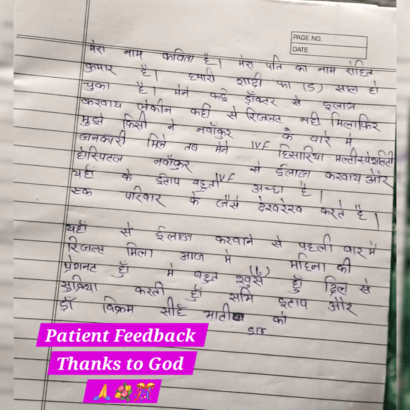 PAGE NO.
DATE
मेरा नाम कविता है। मेरा पति का नाम रोहित
कुमार है। हमारी शादी का (5) साल हो
चुका है। मैने कई डॉक्टर से इलाज
करवाय लेकीन कही से रिजलट नही मिला फिर
मुझे किसी ने नवॉकुर के बारे में
जानकारी मिले तब मैने IVF हिसारिया मल्टीस्पेशलिटी
होस्पिटल नवॉकुर IVF से ईलाज करवाय और
यहाँ के इटाप बहुती अच्छा है।
एक परिवार के जैसे देखरेख करते है।
यहाँ से ईलाज करवाने से पहली वार में
रिजल्ट मिला आज में महिना की
प्रेगनेट हुँ मे बहुत खुश हुँ दिल से
सुक्रिया करती हुँ सभि इटाप और
डॉ विक्रम सींह भाटी को
sir
Patient Feedback
Thanks to God